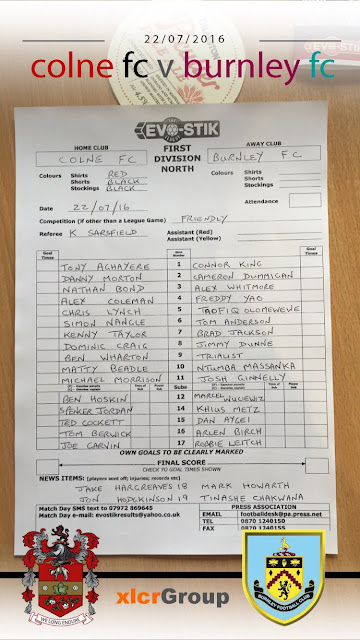 22/07/2016
colne fc v burnley fc
EVO-STIK
HOME CLUB FIRST DIVISION NORTH AWAY CLUB
COLNE FC BURNLEY FC
Colours Shirts RED Colours Shirts
Shorts BLACK Shorts
Stockings BLACK Stockings
Date 22/07/16 Attendance
Competition (if other than a League Game) FRIENDLY
Referee K SARSFIELD Assistant (Red)
Assistant (Yellow)
Goal Times Shirt Number Goal Times
TONY AGHAYERE 1 CONNOR KING
DANNY MORTON 2 CAMERON DUMMIGAN
NATHAN BOND 3 ALEX WHITMORE
ALEX COLEMAN 4 FREDDY YAO
CHRIS LYNCH 5 TAOFIQ OLOMEWEWE
SIMON NANGLE 6 TOM ANDERSON
KENNY TAYLOR 7 BRAD JACKSON
DOMINIC CRAIG 8 JIMMY DUNNE
BEN WHARTON 9 TRIALIST
MATTY BEADLE 10 NTUMBA MASSANKA
MICHAEL MORRISON 11 JOSH GINNELLY
Subs
BEN HOSKIN 12 MARCEL
SPENCER JORDAN 14 KHIUS METZ
TED COCKETT 15 DAN
TOM BERWICK 16 ARLEN BIRCH
JOE GARVIN 17 ROBBIE LEITCH
OWN GOALS TO BE CLEARLY MARKED
FINAL SCORE
CHECK TO GOAL TIMES SHOWN
NEWS ITEMS: (players sent off; injuries; records etc)
JAKE HARGREAVES 18 MARK HOWARTH
JON HODGKINSON 19 TINASHE CHAKWANA
Match Day SMS text to 07972 869645 PRESS ASSOCIATION
Match Day e-mail: evostikresults@yahoo.co.uk EMAIL footballdesk@pa.press.net
TEL 0870 1240150
FAX 0870 1240155
WE LONG ENDURE
xlcrGroup
BURNLEY FOOTBALL CLUB